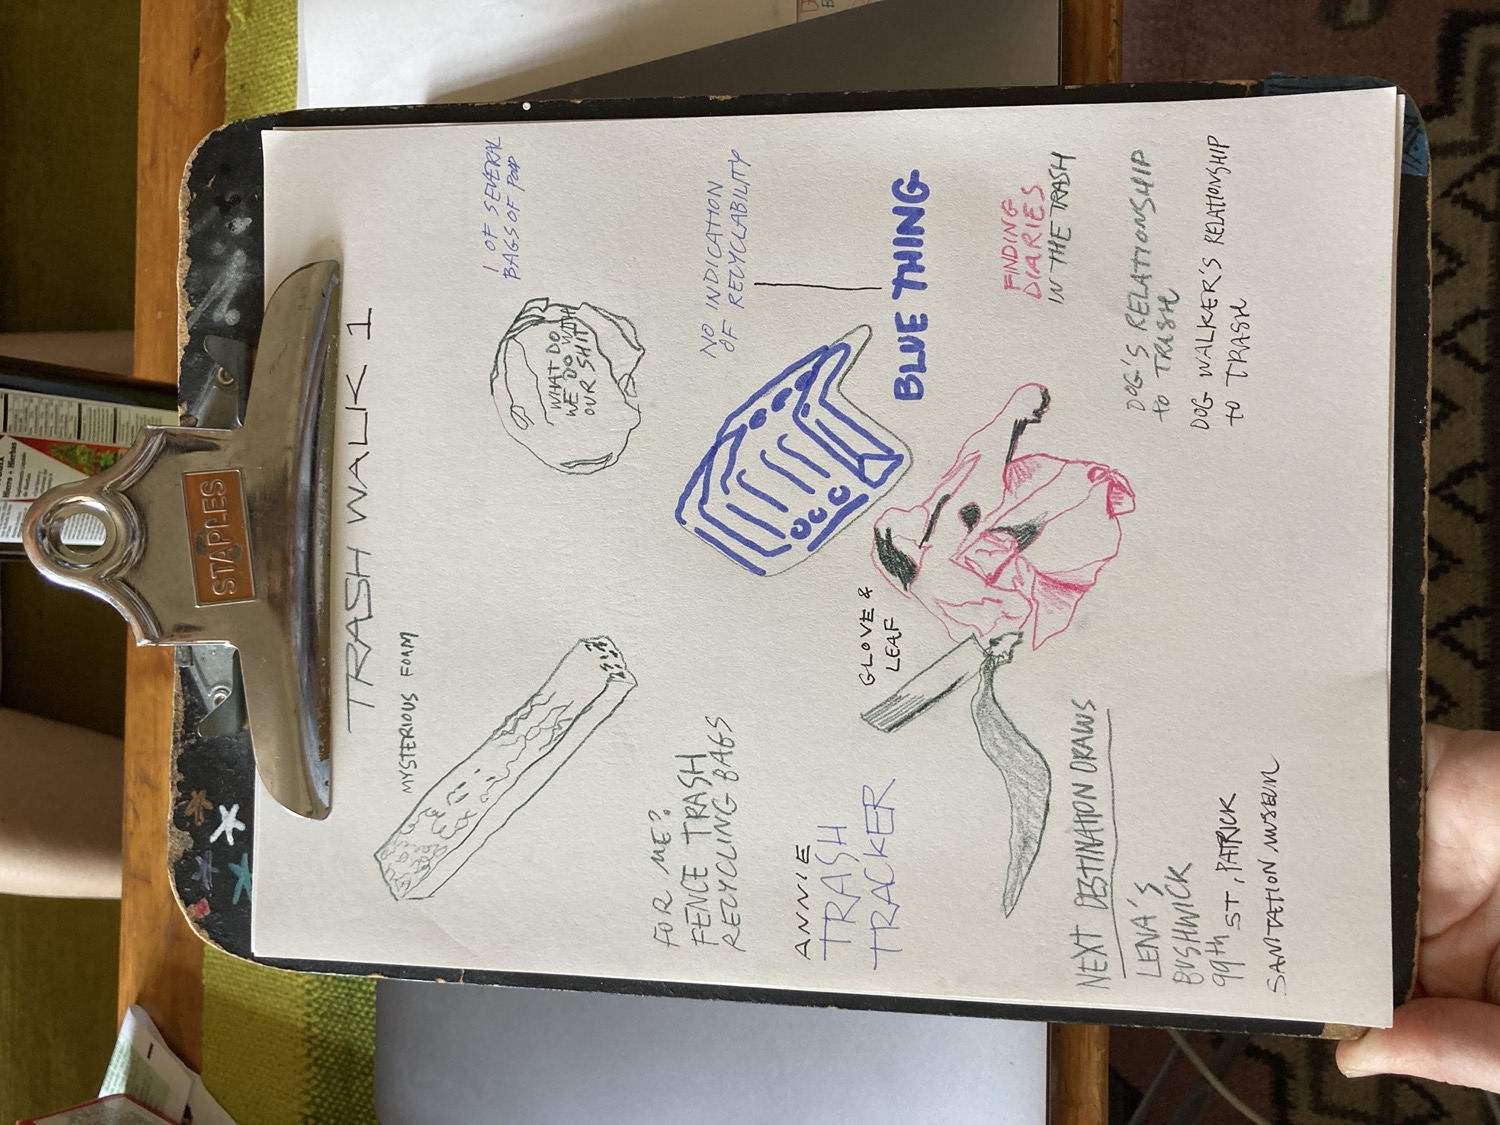 STAPLES
TRASH WALK 1
MYSTERIOUS FOAM
1 OF SEVERAL
BAGS OF POOP
WHAT DO
WE DO WITH
OUR SHIT
NO INDICATION
OF RECYCLABILITY
BLUE THING
FOR ME?
FENCE TRASH
RECYCLING BAGS
ANNIE
TRASH
TRACKER
GLOVE &
LEAF
FINDING
DIARIES
IN THE TRASH
DOG'S RELATIONSHIP
TO TRASH
DOG WALKER'S RELATIONSHIP
TO TRASH
NEXT DESTINATION DRAWS
LENA'S
BUSHWICK
99th ST, PATRICK
SANITATION MUSEUM